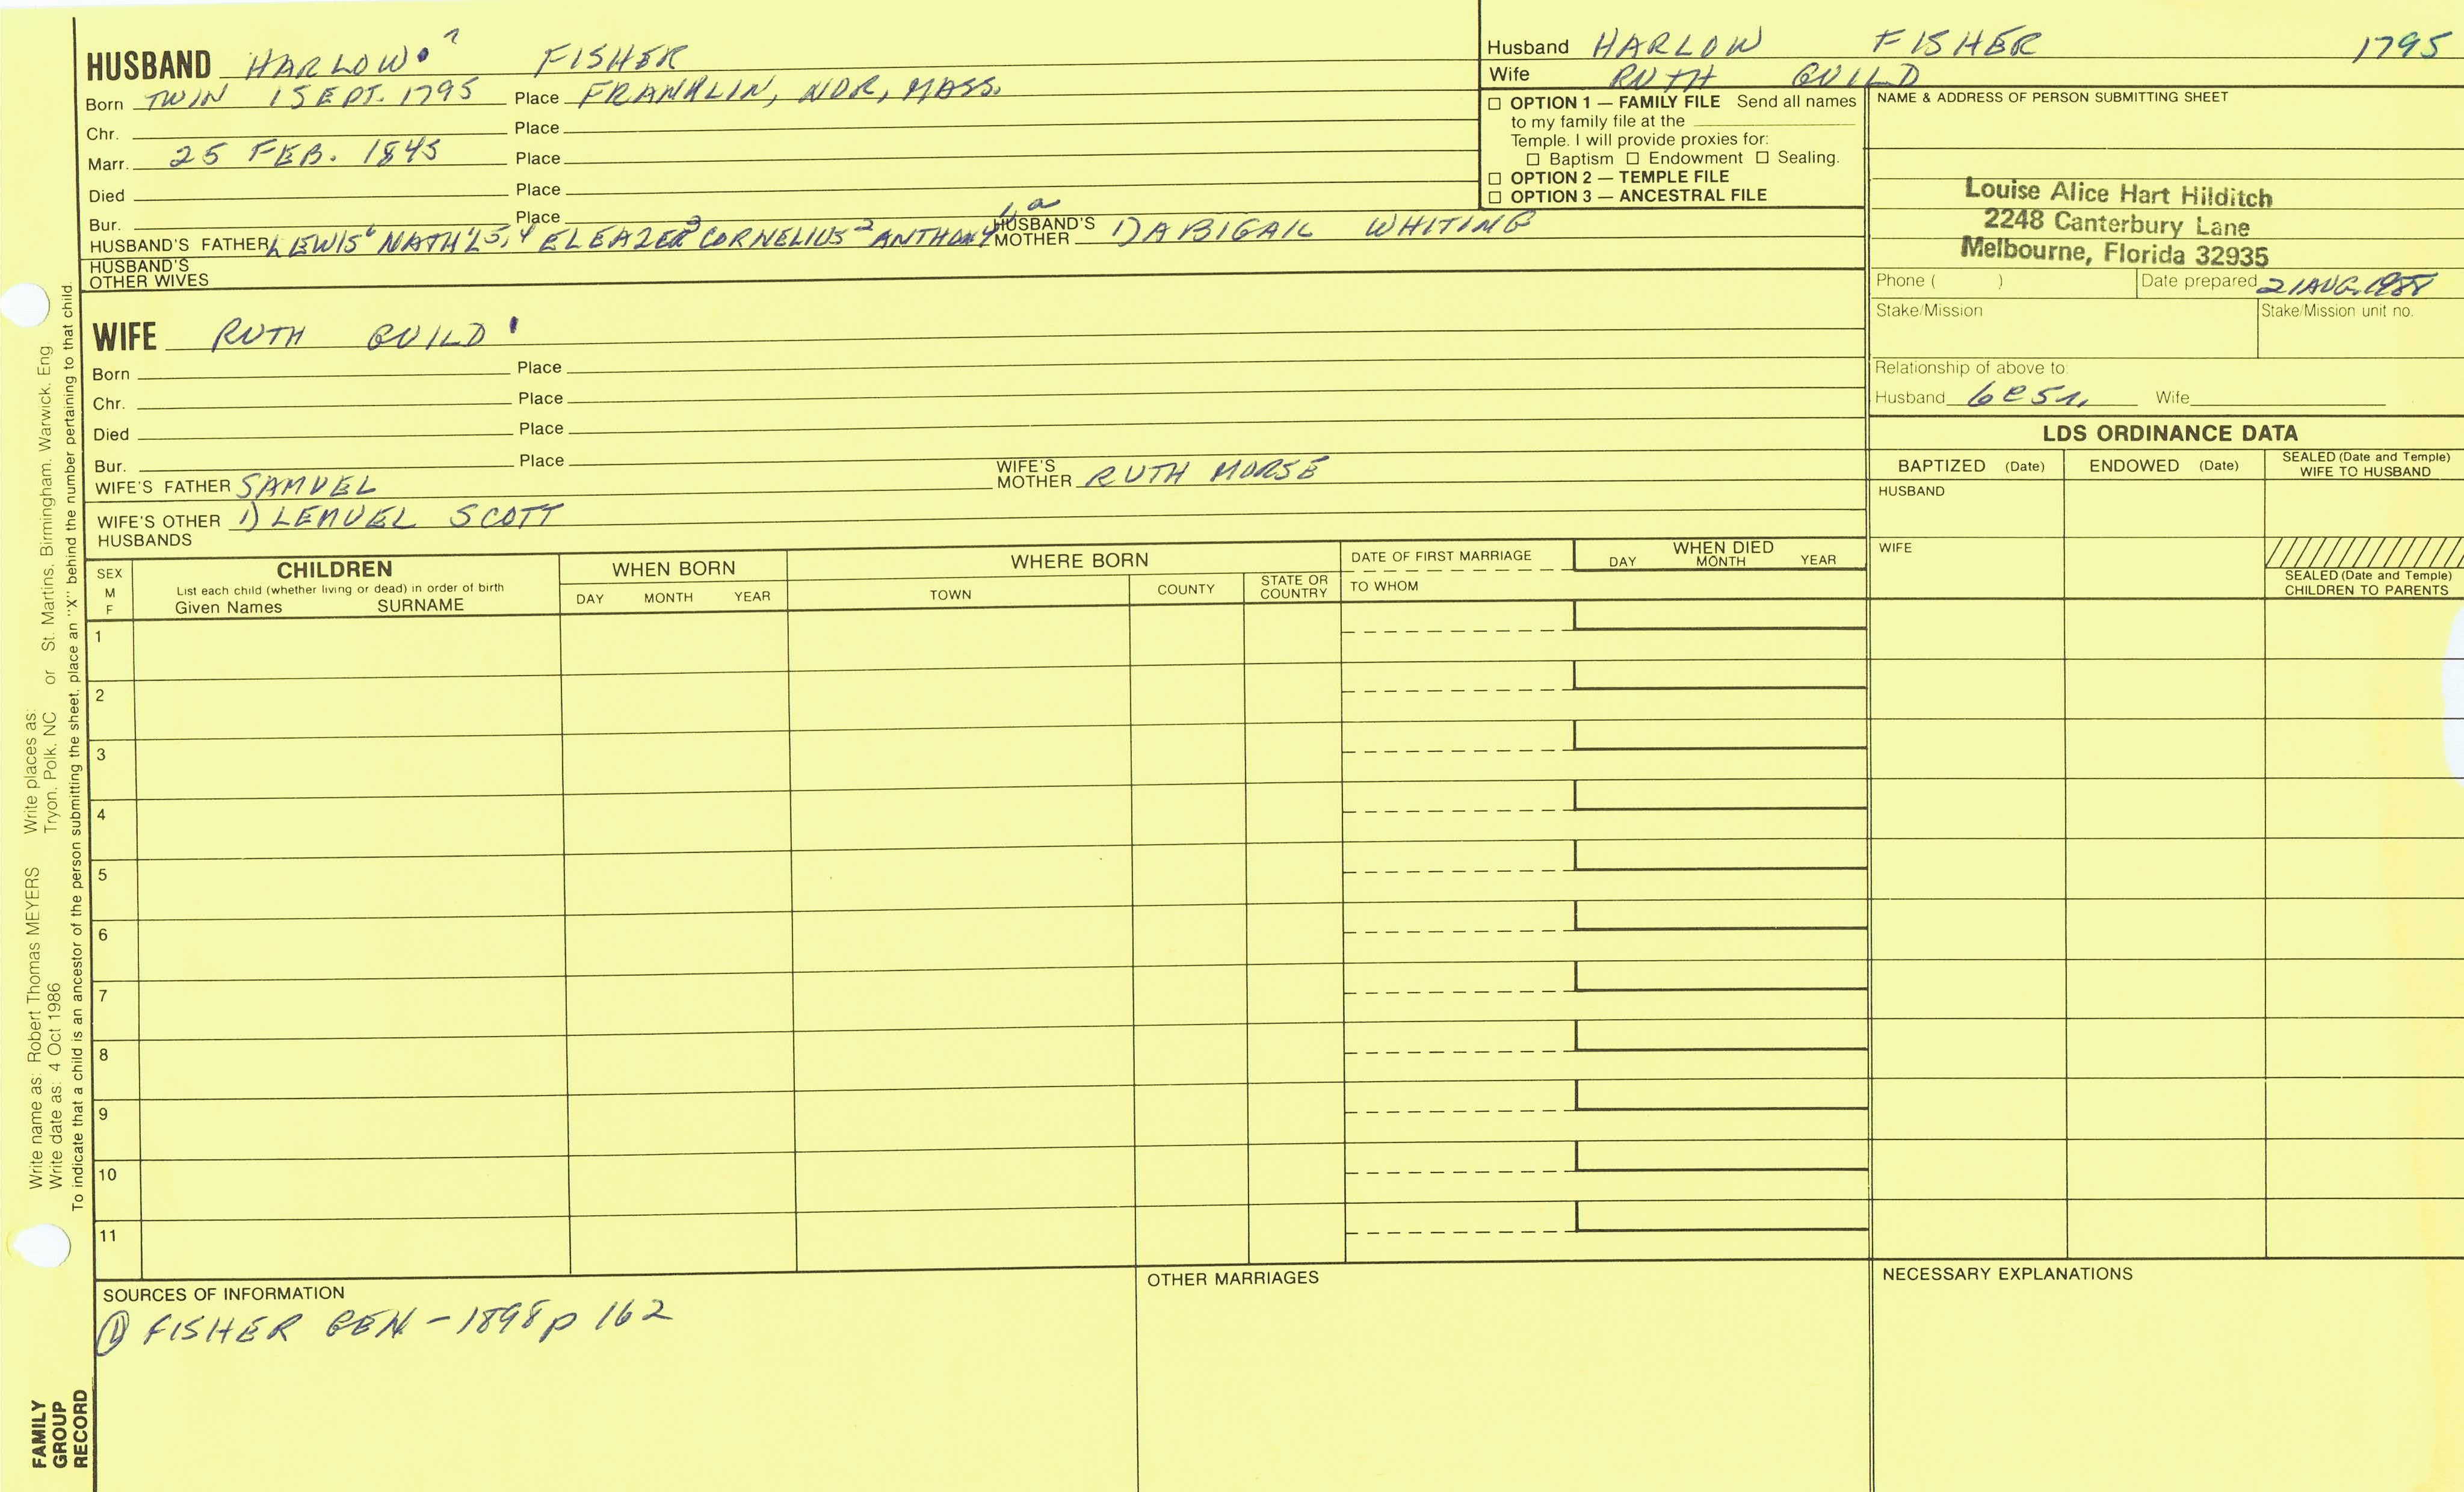 HUSBAND HARLOW 7 FISHER
Born TWIN 1 SEPT. 1795 Place FRANKLIN, NOR, MASS.
Chr. Place
Marr. 25 FEB. 1845 Place
Died Place
Bur. Place
HUSBAND'S FATHER LEWIS 6 NATH'L 5,4 ELEAZER 3 CORNELIUS 2 ANTHONY 1,a HUSBAND'S MOTHER 1) ABIGAIL WHITING
HUSBAND'S OTHER WIVES
Husband HARLOW FISHER 1795
Wife RUTH GUILD
☐ OPTION 1 — FAMILY FILE Send all names
to my family file at the
Temple. I will provide proxies for:
☐ Baptism ☐ Endowment ☐ Sealing.
☐ OPTION 2 — TEMPLE FILE
☐ OPTION 3 — ANCESTRAL FILE
NAME & ADDRESS OF PERSON SUBMITTING SHEET
Louise Alice Hart Hilditch
2248 Canterbury Lane
Melbourne, Florida 32935
Phone ( ) Date prepared 21 AUG. 1988
Stake/Mission Stake/Mission unit no.
Relationship of above to:
Husband 6C5R. Wife
WIFE RUTH GUILD
Born Place
Chr. Place
Died Place
Bur. Place
WIFE'S FATHER SAMUEL WIFE'S MOTHER RUTH MORSE
WIFE'S OTHER HUSBANDS 1) LEMUEL SCOTT
LDS ORDINANCE DATA
BAPTIZED (Date) ENDOWED (Date) SEALED (Date and Temple) WIFE TO HUSBAND
HUSBAND
WIFE
SEALED (Date and Temple) CHILDREN TO PARENTS
SEX M F
CHILDREN
List each child (whether living or dead) in order of birth
Given Names SURNAME
WHEN BORN
DAY MONTH YEAR
WHERE BORN
TOWN COUNTY STATE OR COUNTRY
DATE OF FIRST MARRIAGE
TO WHOM
WHEN DIED
DAY MONTH YEAR
1
2
3
4
5
6
7
8
9
10
11
SOURCES OF INFORMATION
① FISHER GEN - 1898 p 162
OTHER MARRIAGES
NECESSARY EXPLANATIONS
FAMILY GROUP RECORD
Write name as: Robert Thomas MEYERS Write places as:
Write date as: 4 Oct 1986 Tryon, Polk, NC or St. Martins, Birmingham, Warwick, Eng
To indicate that a child is an ancestor of the person submitting the sheet, place an "X" behind the number pertaining to that child.